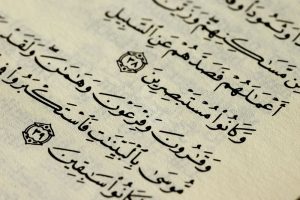 وَثَمُودَا۟
مِّن مَّسَـٰكِنِهِمْ وَزَيَّنَ
أَعْمَـٰلَهُمْ فَصَدَّهُمْ عَنِ ٱلسَّبِيلِ
وَكَانُوا۟ مُسْتَبْصِرِينَ ٣٨
وَقَـٰرُونَ وَفِرْعَوْنَ وَهَـٰمَـٰنَ وَلَقَدْ
مُّوسَىٰ بِٱلْبَيِّنَـٰتِ فَٱسْتَكْبَرُوا۟
كَانُوا۟ سَـٰبِقِينَ ٣٩